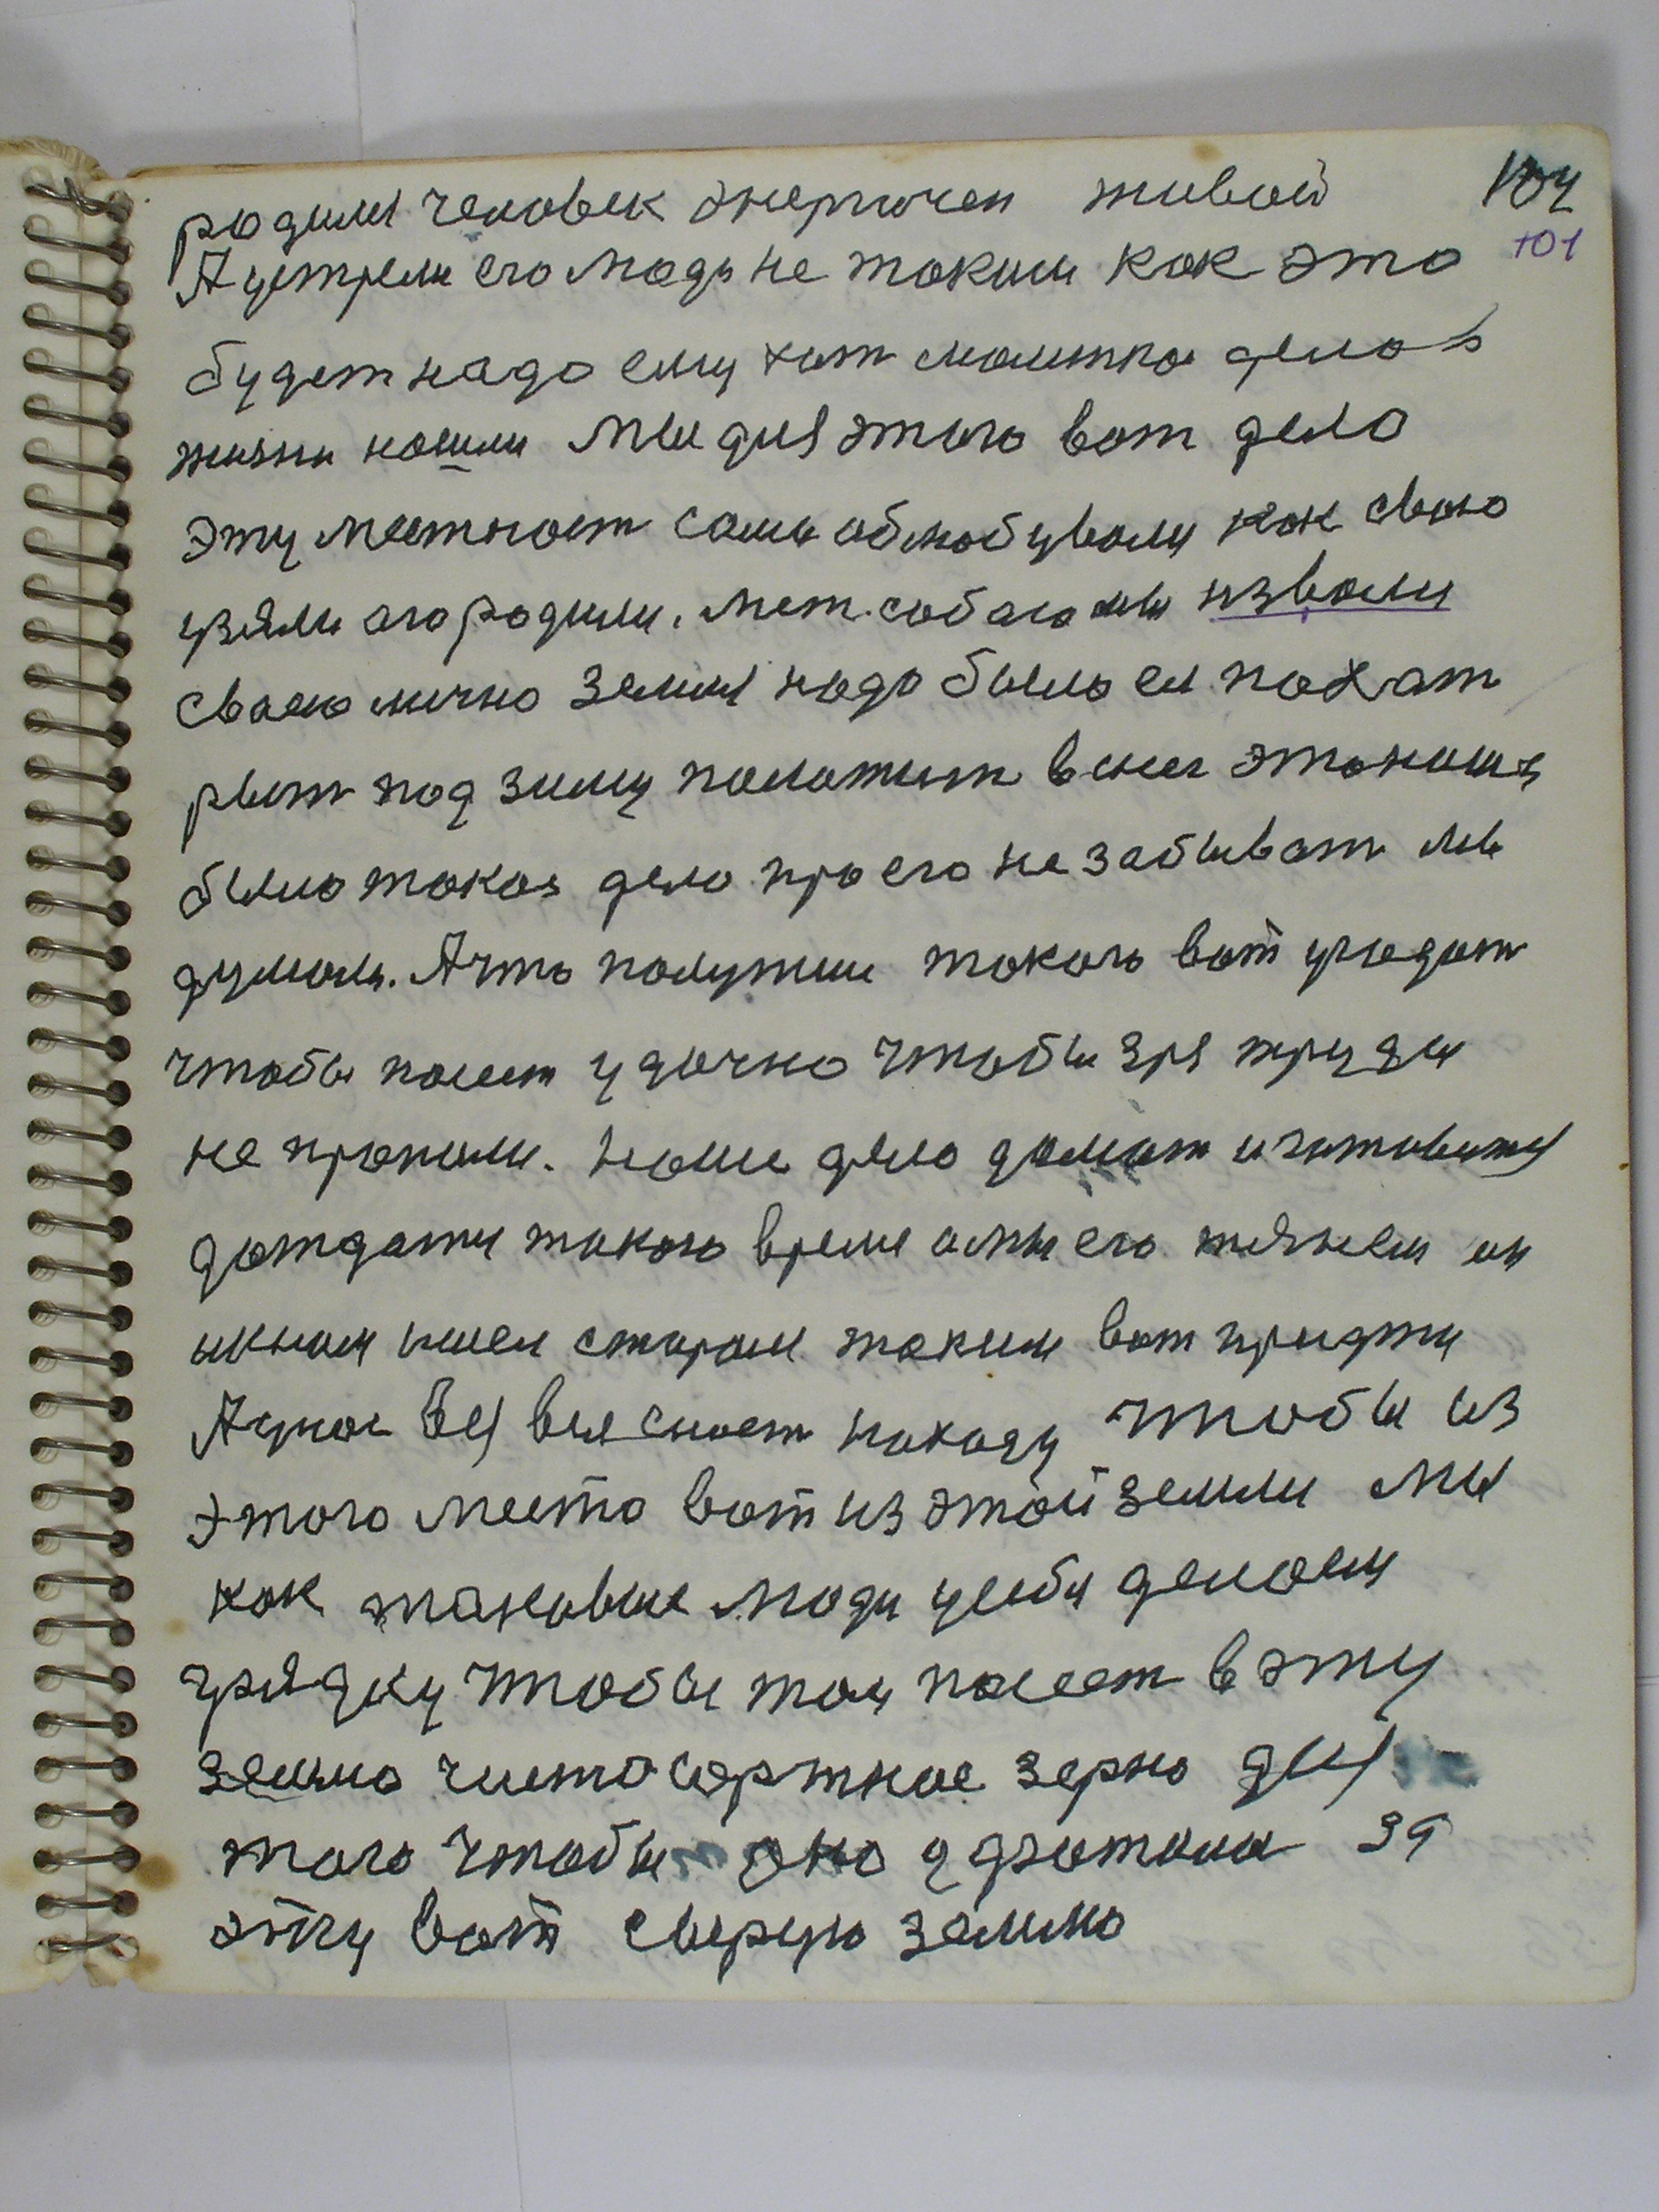 родился человек энергичен живой 104
А устрели его люди не таким как это 101
будет надо ему хат маленткая дела в
жизни нашли мы для этого вот дело
эту местност сами облюбували как свою
узяли огородили. мет. собою мы извали
сваею лично земля надо было ея пахат
рыт под зиму положит в нея это наша
было такая дело про его не забыват мы
думали. А что получше такого вот угадат
чтобы поеет удачно чтобы зря труды
не пропали. наше дело думат и готовится
дождатся такого время а мы его тянем он
к нам идет старым таким вот придти
А урас вся выяснет находу чтобы из
этого место вот из этой земли мы
как таковые люди у себя делаем
грядку чтобы там посеет в эту
землю чистосортное зерно для
того чтобы оно удгатила за
эту вот сырую землю